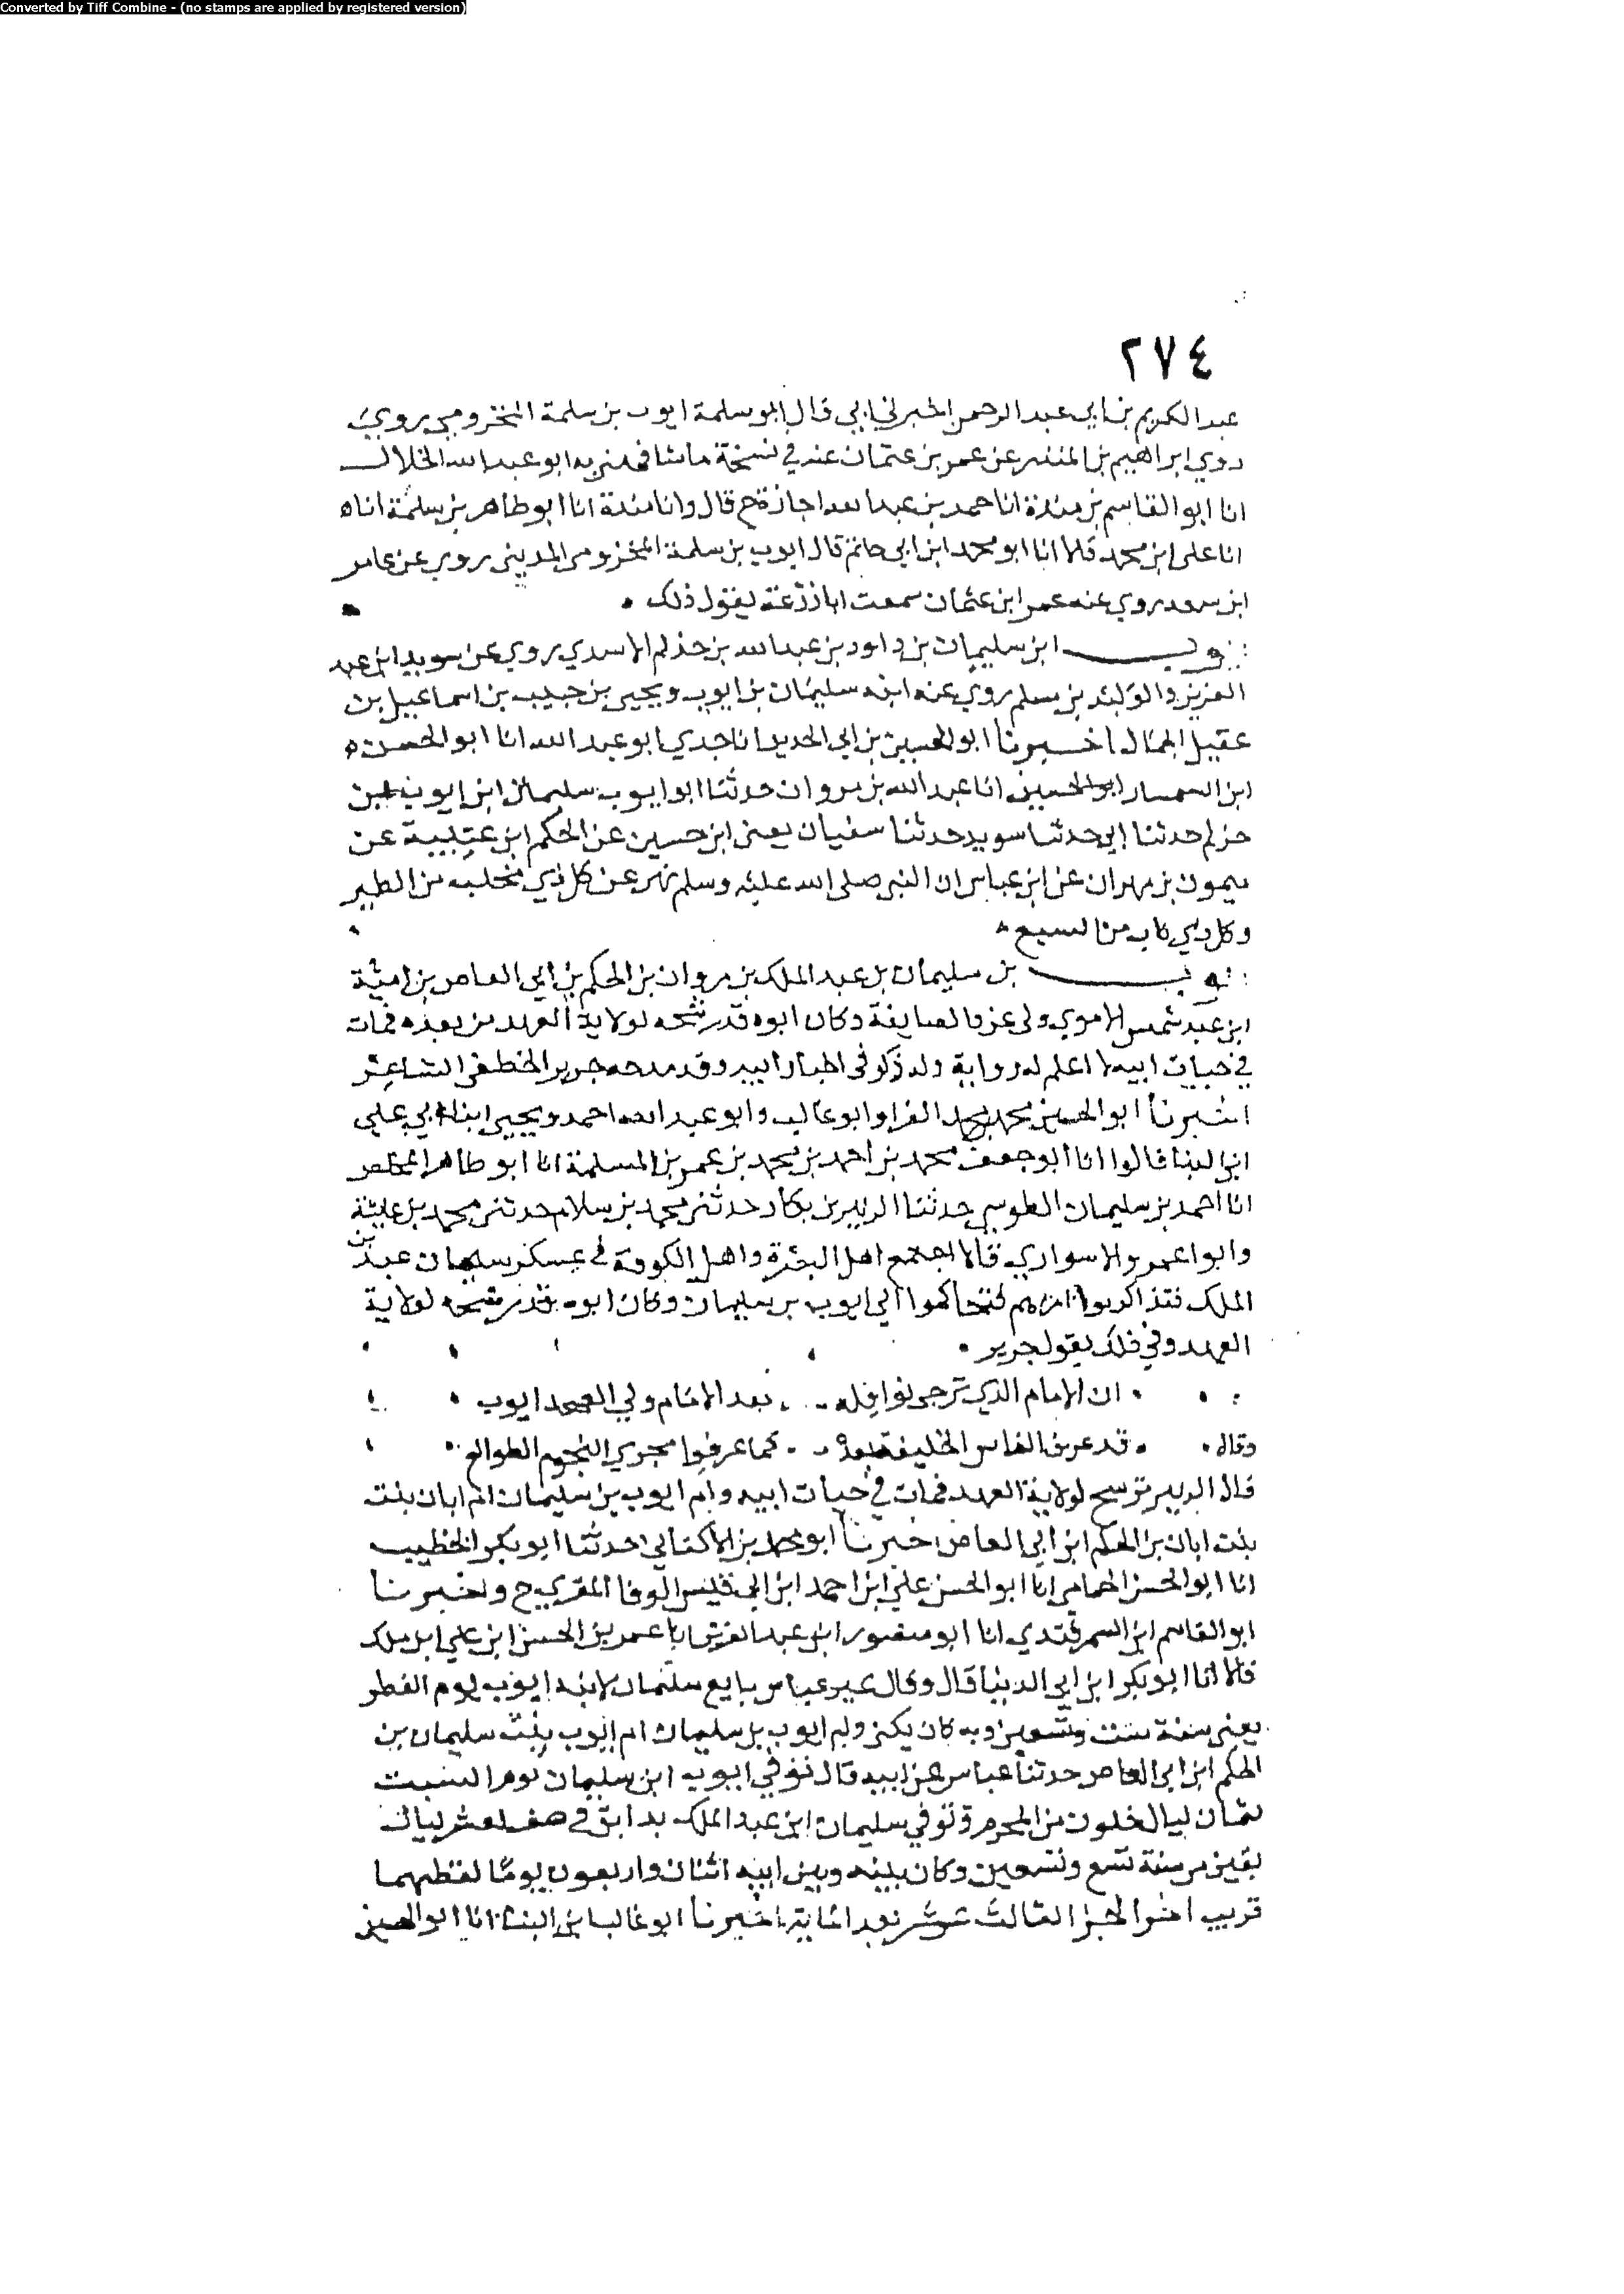 Converted by Tiff Combine - (no stamps are applied by registered version)
٢٧٤
عبد الكريم بن ابي عبد الرحمن اخبرني ابي قال ابو سلمة ايوب بن سلمة المخزومي يروي
روي ابراهيم بن المنذر عن عمر بن عثمان عنه في نسخة ما شافهني به ابو عبد الله الخلال
انا ابو القاسم بن مندة انا حمد بن عبد الله اجازة ح قال وانا مندة انا ابو طاهر بن سلمة انا
انا على ابن محمد قالا انا ابو محمد ابن ابي حاتم قال ايوب بن سلمة المخزومي المديني روي عن عامر
ابن سعد روي عنه عمر ابن عثمان سمعت ابا زرعة يقول ذلك
ابن سليمان بن داود بن عبد الله بن حذلم الاسدي روي عن سويد ابن عبد
العزيز والوليد بن مسلم روي عنه ابنه سليمان بن ايوب ويحيى بن حبيب بن اسماعيل بن
عقيل الجمال اخبرنا ابو الحسين بن ابي الحديد انا جدي ابو عبد الله انا ابو الحسن
ابن السمسار ابو الحسين انا عبد الله بن مروان حدثنا ابو ايوب سليمان ابن ايوب ابن
حزلم حدثنا ابي حدثنا سويد حدثنا سفيان يعني ابن حسين عن الحكم ابن عتيبة عن
ميمون بن مهران عن ابن عباس ان النبي صلى الله عليه وسلم نهى عن كل ذي مخلب من الطير
وكل ذي ناب من السبع
بن سليمان بن عبد الملك بن مروان بن الحكم بن ابي العاص بن امية
ابن عبد شمس الاموي ولى غزو الصايفة وكان ابوه قد رشحه لولاية العهد من بعده فمات
في حيات ابيه لا اعلم له رواية وله ذكر في اخبار ابيه وقد مدحه جرير الخطفى الشاعر
اخبرنا ابو الحسين محمد بن محمد الفرا وابو غالب وابو عبد الله احمد ويحيى ابنا ابي علي
ابن البنا قالوا انا ابو جعفر محمد بن احمد بن محمد بن عمر بن المسلمة انا ابو طاهر المخلص
انا احمد بن سليمان الطوسي حدثنا الزبير بن بكار حدثني محمد بن سلام حدثني محمد بن عيينة
وابوا عمرو الاسواري قالا اجتمع اهل البصرة واهل الكوفة في عسكر سليمان بن عبد
الملك فتذاكروا امرهم فتحاكموا الي ايوب بن سليمان وكان ابوه قد رشحه لولاية
العهد وفي ذلك يقول جرير
ان الامام الذي ترجى نوافله بعد الامام ولي العهد ايوب
وقال قد عرف الناس الخليفة بعده كما عرفوا مجري النجوم الطوالع
قال الزبير ترشح لولاية العهد فمات في حيات ابيه وام ايوب بن سليمان ام ابان بنت
بنت ابان بن الحكم ابن ابي العاص اخبرنا ابو محمد بن الاكفاني حدثنا ابو بكر الخطيب
انا ابو الحسن الحمامي انا ابو الحسن علي ابن احمد ابن ابي قيس الوفا المقري ح واخبرنا
ابو القاسم ابن السمرقندي انا ابو منصور ابن عبد العزيز انا عمر بن الحسن ابن علي ابن ملك
قالا انا ابو بكر ابن ابي الدنيا قال وقال غير عباس بايع سليمان لابنه ايوب يوم الفطر
يعني سنة ست وتسعين وبه كان يكنى ولم ايوب بن سليمان ام ايوب بنت سليمان بن
الحكم ابن ابي العاص حدثنا عباس عن ابيه قال توفي ايوب ابن سليمان يوم السبت
لثمان ليال خلون من المحرم وتوفي سليمان ابن عبد الملك بدابق في صفر لعشر ليال
بقين من سنة تسع وتسعين وكان بينه وبين ابيه اثنان واربعون يوما لفظهما
قريب اخر الجزء الثالث عشر بعد الماية اخبرنا ابو غالب ابن البنا انا ابو الحسين